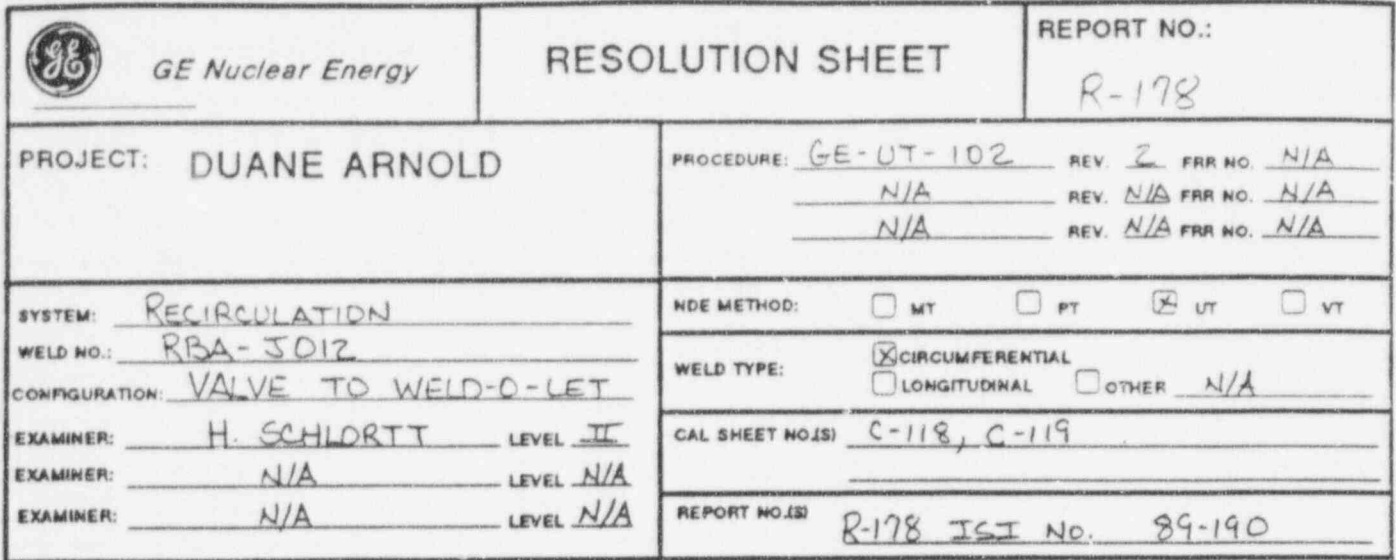 GE
GE Nuclear Energy
RESOLUTION SHEET
REPORT NO.:
R-178
PROJECT: DUANE ARNOLD
PROCEDURE: GE-UT-102 REV. 2 FRR NO. N/A
N/A REV. N/A FRR NO. N/A
N/A REV. N/A FRR NO. N/A
SYSTEM: RECIRCULATION
WELD NO.: RBA-J012
CONFIGURATION: VALVE TO WELD-O-LET
EXAMINER: H. SCHLORTT LEVEL II
EXAMINER: N/A LEVEL N/A
EXAMINER: N/A LEVEL N/A
NDE METHOD: MT PT UT VT
WELD TYPE: CIRCUMFERENTIAL
LONGITUDINAL OTHER N/A
CAL SHEET NO.(S) C-118, C-119
REPORT NO.(S) R-178 ISI No. 89-190